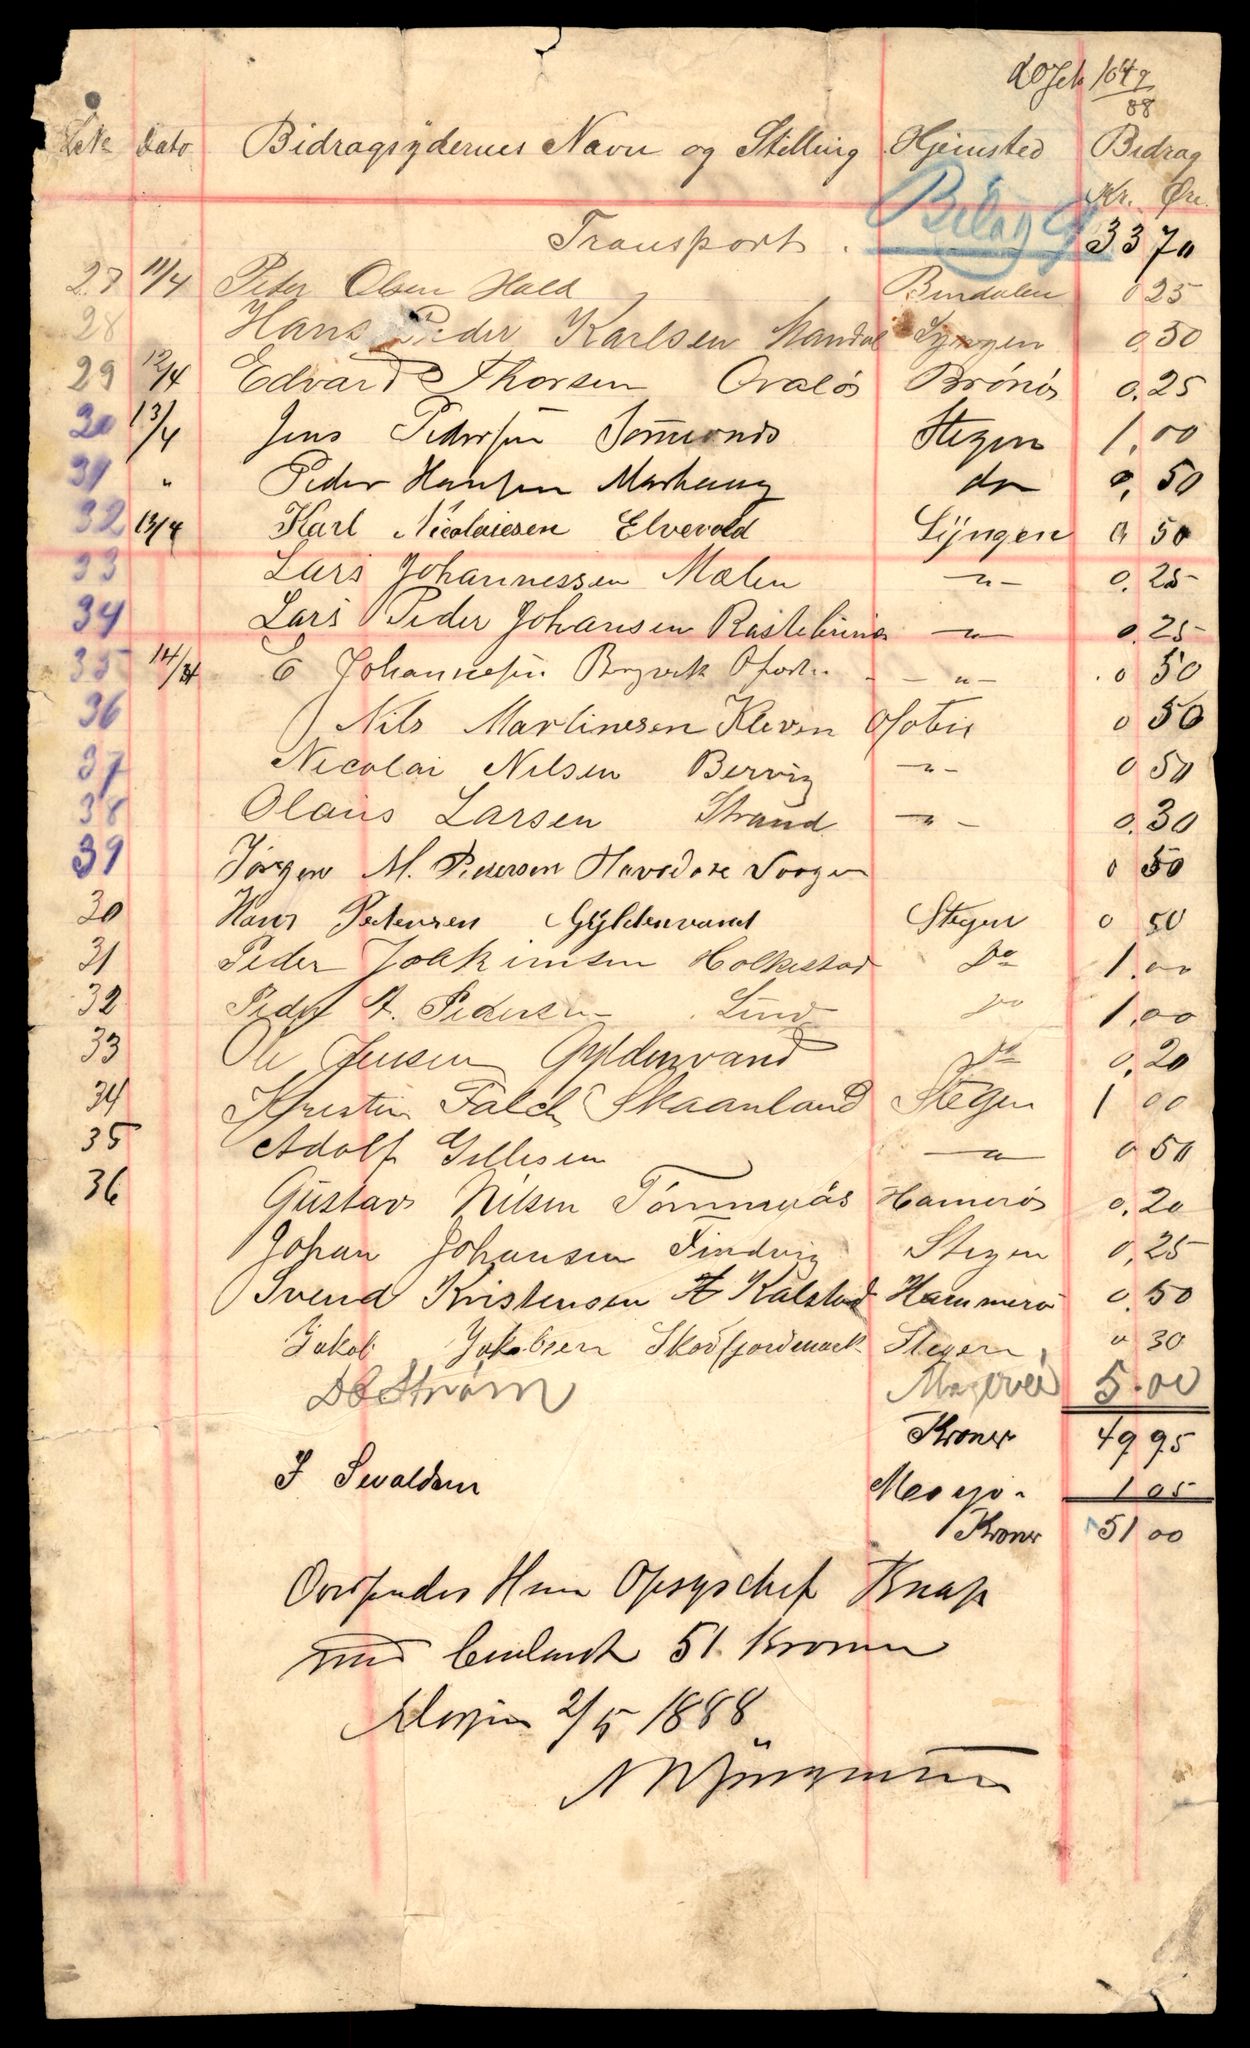 dojek 1049/88
LNo Dato Bidragsydernes Navn og Stilling Hjemsted Bidrag
Kr. Øre.
Bilag 9
Transport . 33 70
27 11/4 Peder Olsen Hald Bindalen 0 25
28 Hans Peder Karlsen Mandal Lyngen 0.30
29 12/4 Edvard Thorsen Brönös 0.25
30 13/4 Jens Pedersen Stegen 1.00
31 " Peder Hansen do 0, 50
32 13/4 Karl Nicolaisen Elvevold Lÿngen 0 50
33 Lars Johannessen Mælen —"— 0.25
34 Lars Peder Johansen —"— 0.25
35 14/4 E Johannesen Bergvik Ofoten —"— 0 50
36 Nils Martinesen Kleven Ofoten 0 50
37 Nicolai Nilsen Bervig —"— 0 50
38 Olaus Larsen Strand —"— 0.30
39 Jörgen M. Pedersen 0 50
30 Hans Pedersen Gÿldenvand Stegen 0 50
31 Peder Joakimsen Holkestad Do 1.00
32 Peder A. Pedersen Lund Do 1.00
33 Ole Jensen Gyldenvand Do 0,20
34 Kristen Falch Skaanland Stegen 1 00
35 Adolf Gillesen —"— 0 50
36 Gustav Nilsen Tömmernäs Hamerös 0.20
Johan Johansen Findvig Stegen 0,25
Svend Kristensen Kalstad Hammerö 0.50
Jakob Jakobsen Skotfjordmark Stegen 0 30
Ström 5.00
Kroner 49 95
J Sevaldsen 1 05
Kroner 51 00
Oversendes Herr Opsynschef Knap
med 51 Kroner
2/5 1888